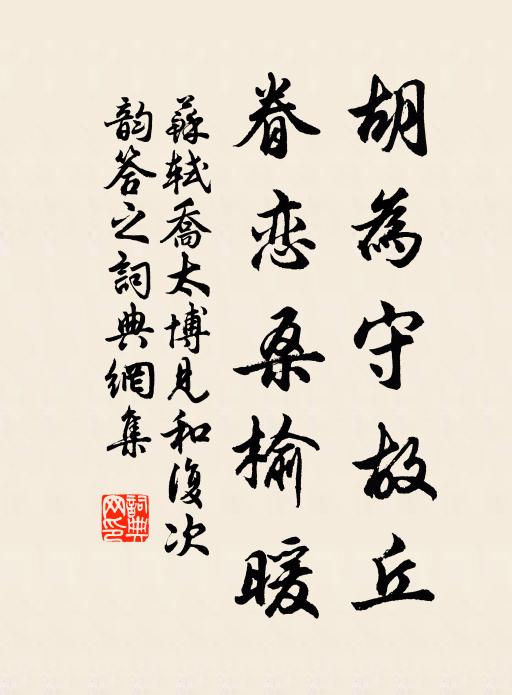 胡為守故丘
眷恋桑榆暖
蘇軾喬太博見和復次
韵答之詞典網集
詞典
网印